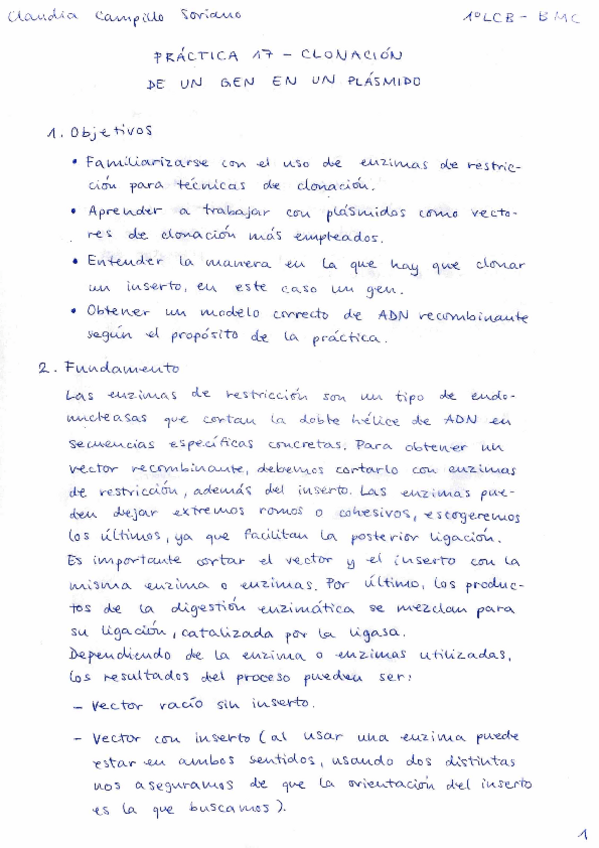 Claudia Campillo Soriano
1º LCB - BMC
PRÁCTICA 17 - CLONACIÓN
DE UN GEN EN UN PLÁSMIDO
1. Objetivos
• Familiarizarse con el uso de enzimas de restric-
ción para técnicas de clonación.
• Aprender a trabajar con plásmidos como vecto-
res de clonación más empleados.
• Entender la manera en la que hay que clonar
un inserto, en este caso un gen.
• Obtener un modelo correcto de ADN recombinante
según el propósito de la práctica.
2. Fundamento
Las enzimas de restricción son un tipo de endo-
nucleasas que cortan la doble hélice de ADN en
secuencias específicas concretas. Para obtener un
vector recombinante, debemos cortarlo con enzimas
de restricción, además del inserto. Las enzimas pue-
den dejar extremos romos o cohesivos, escogeremos
los últimos, ya que facilitan la posterior ligación.
Es importante cortar el vector y el inserto con la
misma enzima o enzimas. Por último, los produc-
tos de la digestión enzimática se mezclan para
su ligación, catalizada por la ligasa.
Dependiendo de la enzima o enzimas utilizadas,
los resultados del proceso pueden ser:
- Vector vacío sin inserto.
- Vector con inserto (al usar una enzima puede
estar en ambos sentidos, usando dos distintas
nos aseguramos de que la orientación del inserto
es la que buscamos).
1